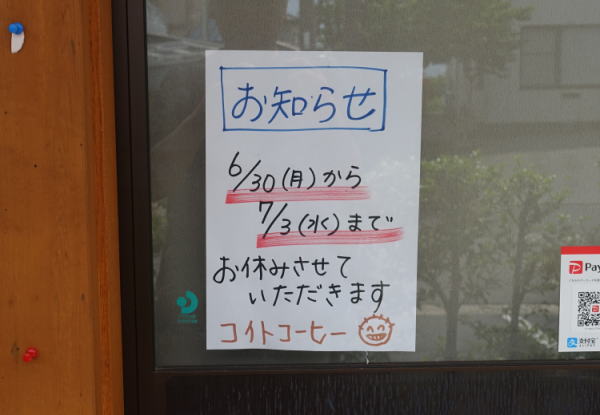 お知らせ
6/30(月)から
7/3(水)まで
お休みさせて
いただきます
コイトコーヒー
Pay
支付宝